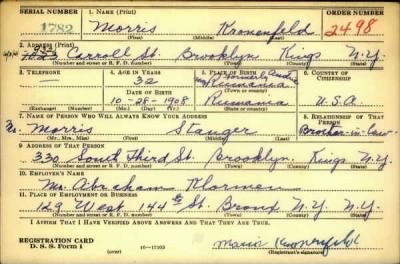 SERIAL NUMBER 1. NAME (Print) ORDER NUMBER
1782 Morris Kronenfeld 2498
(First) (Middle) (Last)
2. ADDRESS (Print)
Carroll St. Brooklyn Kings N.Y.
(Number and street or R. F. D. number) (Town) (County) (State)
3. TELEPHONE 4. AGE IN YEARS 5. PLACE OF BIRTH 6. COUNTRY OF CITIZENSHIP
32 formerly Austria
Rumania
DATE OF BIRTH (Town or county)
10-28-1908 Rumania U.S.A.
(Exchange) (Number) (Mo.) (Day) (Yr.) (State or country)
7. NAME OF PERSON WHO WILL ALWAYS KNOW YOUR ADDRESS 8. RELATIONSHIP OF THAT PERSON
Mr. Morris Stanger Brother-in-law
(Mr., Mrs., Miss) (First) (Middle) (Last)
9. ADDRESS OF THAT PERSON
330 South Third St. Brooklyn Kings N.Y.
(Number and street or R. F. D. number) (Town) (County) (State)
10. EMPLOYER'S NAME
Mr. Abraham
11. PLACE OF EMPLOYMENT OR BUSINESS
129 West 144th St. Bronx N.Y. N.Y.
(Number and street or R. F. D. number) (Town) (County) (State)
I AFFIRM THAT I HAVE VERIFIED ABOVE ANSWERS AND THAT THEY ARE TRUE.
REGISTRATION CARD
D. S. S. Form 1 (over) 16-17105 Morris Kronenfeld
(Registrant's signature)